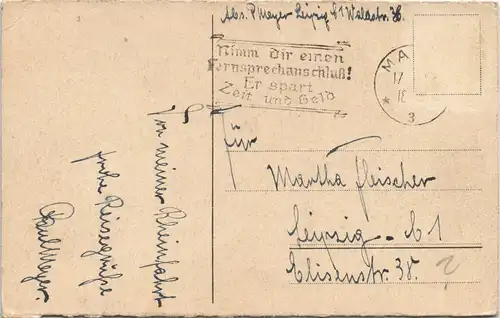 Abs. P. Meyer Leipzig C1 Waldstr. 36
Nimm dir einen
Fernsprechanschluß!
Er spart
Zeit und Geld
MA
17
12
* 3
Von meiner Rheinfahrt
frohe Reisegrüße
Paul Meyer.
Für
Martha Fleischer
Leipzig - C1
Elisenstr. 38.